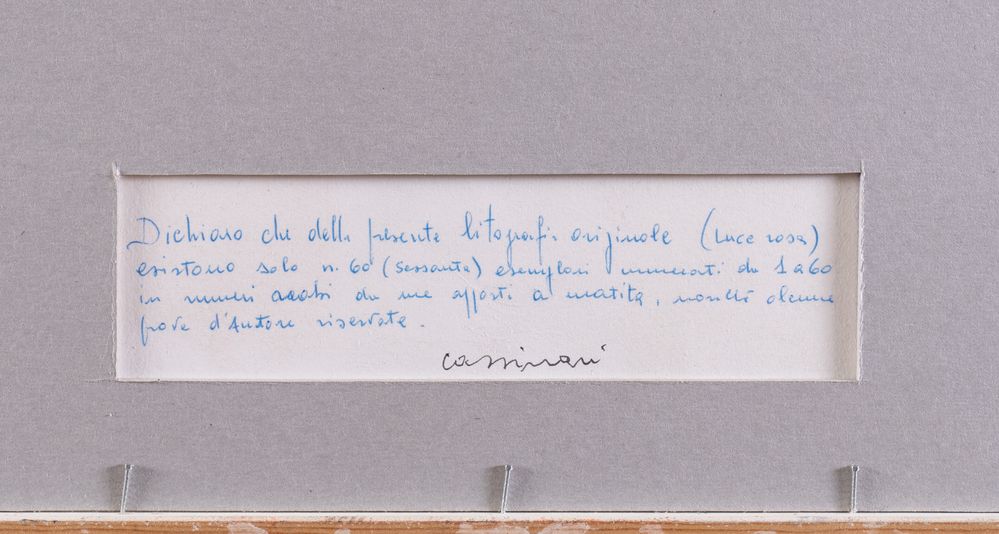 Dichiaro che della presente litografia originale (Luce rosa)
esistono solo n. 60 (sessanta) esemplari numerati da 1 a 60
in numeri arabi da me apposti a matita, nonché alcune
prove d'Autore riservate.
Cassinari